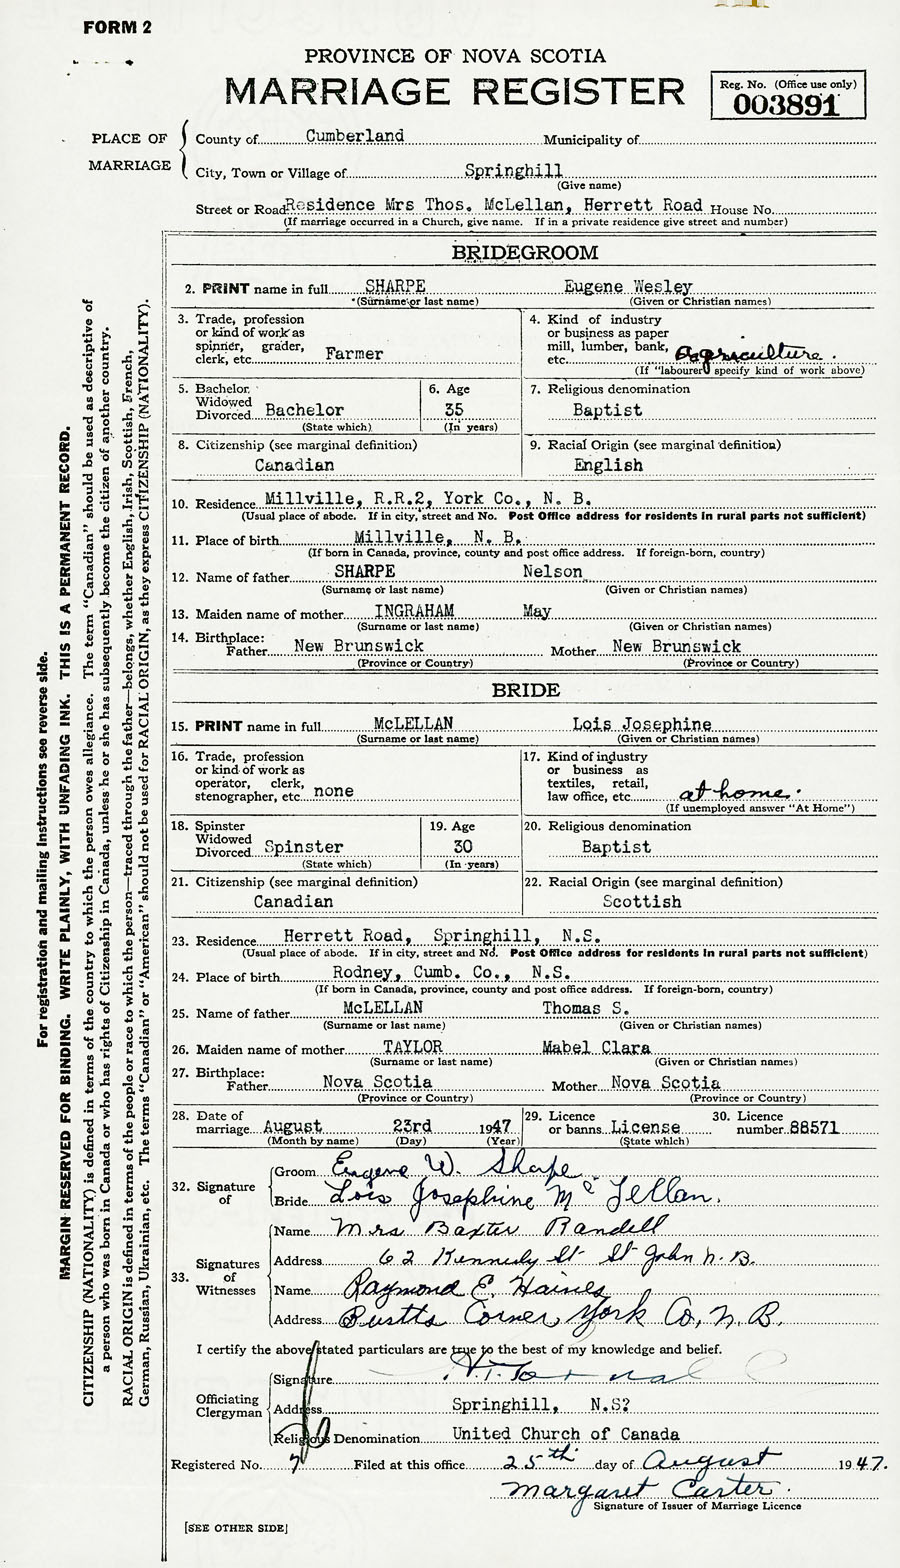 FORM 2
PROVINCE OF NOVA SCOTIA
MARRIAGE REGISTER
Reg. No. (Office use only)
003891
PLACE OF MARRIAGE
County of Cumberland Municipality of
City, Town or Village of Springhill
(Give name)
Street or Road Residence Mrs Thos. McLellan, Herrett Road House No.
(If marriage occurred in a Church, give name. If in a private residence give street and number)
BRIDEGROOM
2. PRINT name in full SHARPE Eugene Wesley
(Surname or last name) (Given or Christian names)
3. Trade, profession
or kind of work as
spinner, grader,
clerk, etc. Farmer
4. Kind of industry
or business as paper
mill, lumber, bank,
etc. Agriculture.
(If "labourer" specify kind of work above)
5. Bachelor
Widowed
Divorced Bachelor
(State which)
6. Age
35
(In years)
7. Religious denomination
Baptist
8. Citizenship (see marginal definition)
Canadian
9. Racial Origin (see marginal definition)
English
10. Residence Millville, R.R.2, York Co., N. B.
(Usual place of abode. If in city, street and No. Post Office address for residents in rural parts not sufficient)
11. Place of birth Millville, N. B.
(If born in Canada, province, county and post office address. If foreign-born, country)
12. Name of father SHARPE Nelson
(Surname or last name) (Given or Christian names)
13. Maiden name of mother INGRAHAM May
(Surname or last name) (Given or Christian names)
14. Birthplace:
Father New Brunswick Mother New Brunswick
(Province or Country) (Province or Country)
BRIDE
15. PRINT name in full McLELLAN Lois Josephine
(Surname or last name) (Given or Christian names)
16. Trade, profession
or kind of work as
operator, clerk,
stenographer, etc. none
17. Kind of industry
or business as
textiles, retail,
law office, etc. at home.
(If unemployed answer "At Home")
18. Spinster
Widowed
Divorced Spinster
(State which)
19. Age
30
(In years)
20. Religious denomination
Baptist
21. Citizenship (see marginal definition)
Canadian
22. Racial Origin (see marginal definition)
Scottish
23. Residence Herrett Road, Springhill, N.S.
(Usual place of abode. If in city, street and No. Post Office address for residents in rural parts not sufficient)
24. Place of birth Rodney, Cumb. Co., N.S.
(If born in Canada, province, county and post office address. If foreign-born, country)
25. Name of father McLELLAN Thomas S.
(Surname or last name) (Given or Christian names)
26. Maiden name of mother TAYLOR Mabel Clara
(Surname or last name) (Given or Christian names)
27. Birthplace:
Father Nova Scotia Mother Nova Scotia
(Province or Country) (Province or Country)
28. Date of
marriage August 23rd 1947
(Month by name) (Day) (Year)
29. Licence
or banns License
(State which)
30. Licence
number 88571
32. Signature of
Groom Eugene W. Sharpe
Bride Lois Josephine McLellan.
33. Signatures of Witnesses
Name Mrs Baxter Randell
Address 62 Kennedy St St John N.B.
Name Raymond E. Haines
Address Burtts Corner, York Co, N.B.
I certify the above stated particulars are true to the best of my knowledge and belief.
Officiating Clergyman
Signature
Address Springhill, N.S?
Religious Denomination United Church of Canada
Registered No. 7 Filed at this office 25th day of August 1947.
Margaret Carter.
Signature of Issuer of Marriage Licence
[SEE OTHER SIDE]
For registration and mailing instructions see reverse side.
MARGIN RESERVED FOR BINDING. WRITE PLAINLY, WITH UNFADING INK. THIS IS A PERMANENT RECORD.
CITIZENSHIP (NATIONALITY) is defined in terms of the country to which the person owes allegiance. The term "Canadian" should be used as descriptive of
a person who was born in Canada or who has rights of Citizenship in Canada, unless he or she has subsequently become the citizen of another country.
RACIAL ORIGIN is defined in terms of the people or race to which the person—traced through the father—belongs, whether English, Irish, Scottish, French,
German, Russian, Ukrainian, etc. The terms "Canadian" or "American" should not be used for RACIAL ORIGIN, as they express CITIZENSHIP (NATIONALITY).